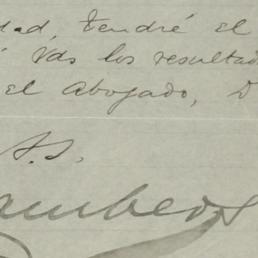 dad, tendré el
Vds los resultad
el Abogado, D
S.S.